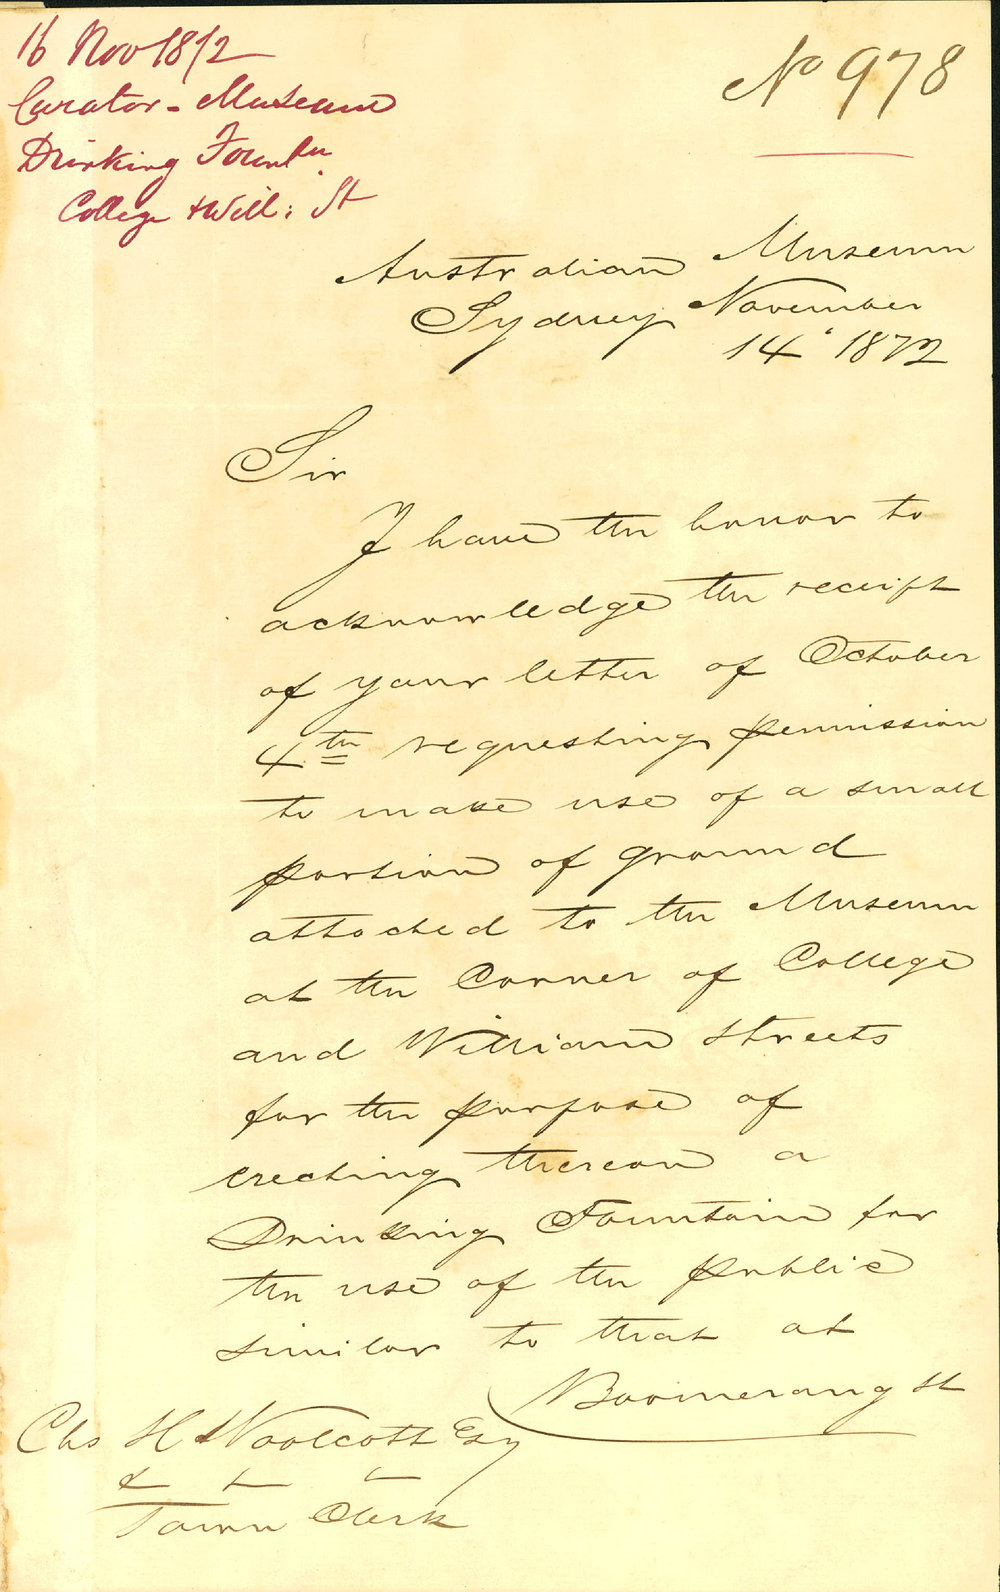 16 Nov 1872
Curator - Museum
Drinking Fount'n
College & Will: St
No 978
Australian Museum
Sydney November
14 1872
Sir
I have the honor to
acknowledge the receipt
of your letter of October
4th requesting permission
to make use of a small
portion of ground
attached to the Museum
at the Corner of College
and William Streets
for the purpose of
erecting thereon a
Drinking Fountain for
the use of the public
similar to that at
Boomerang St
Chs H Woolcott Esq
Town Clerk